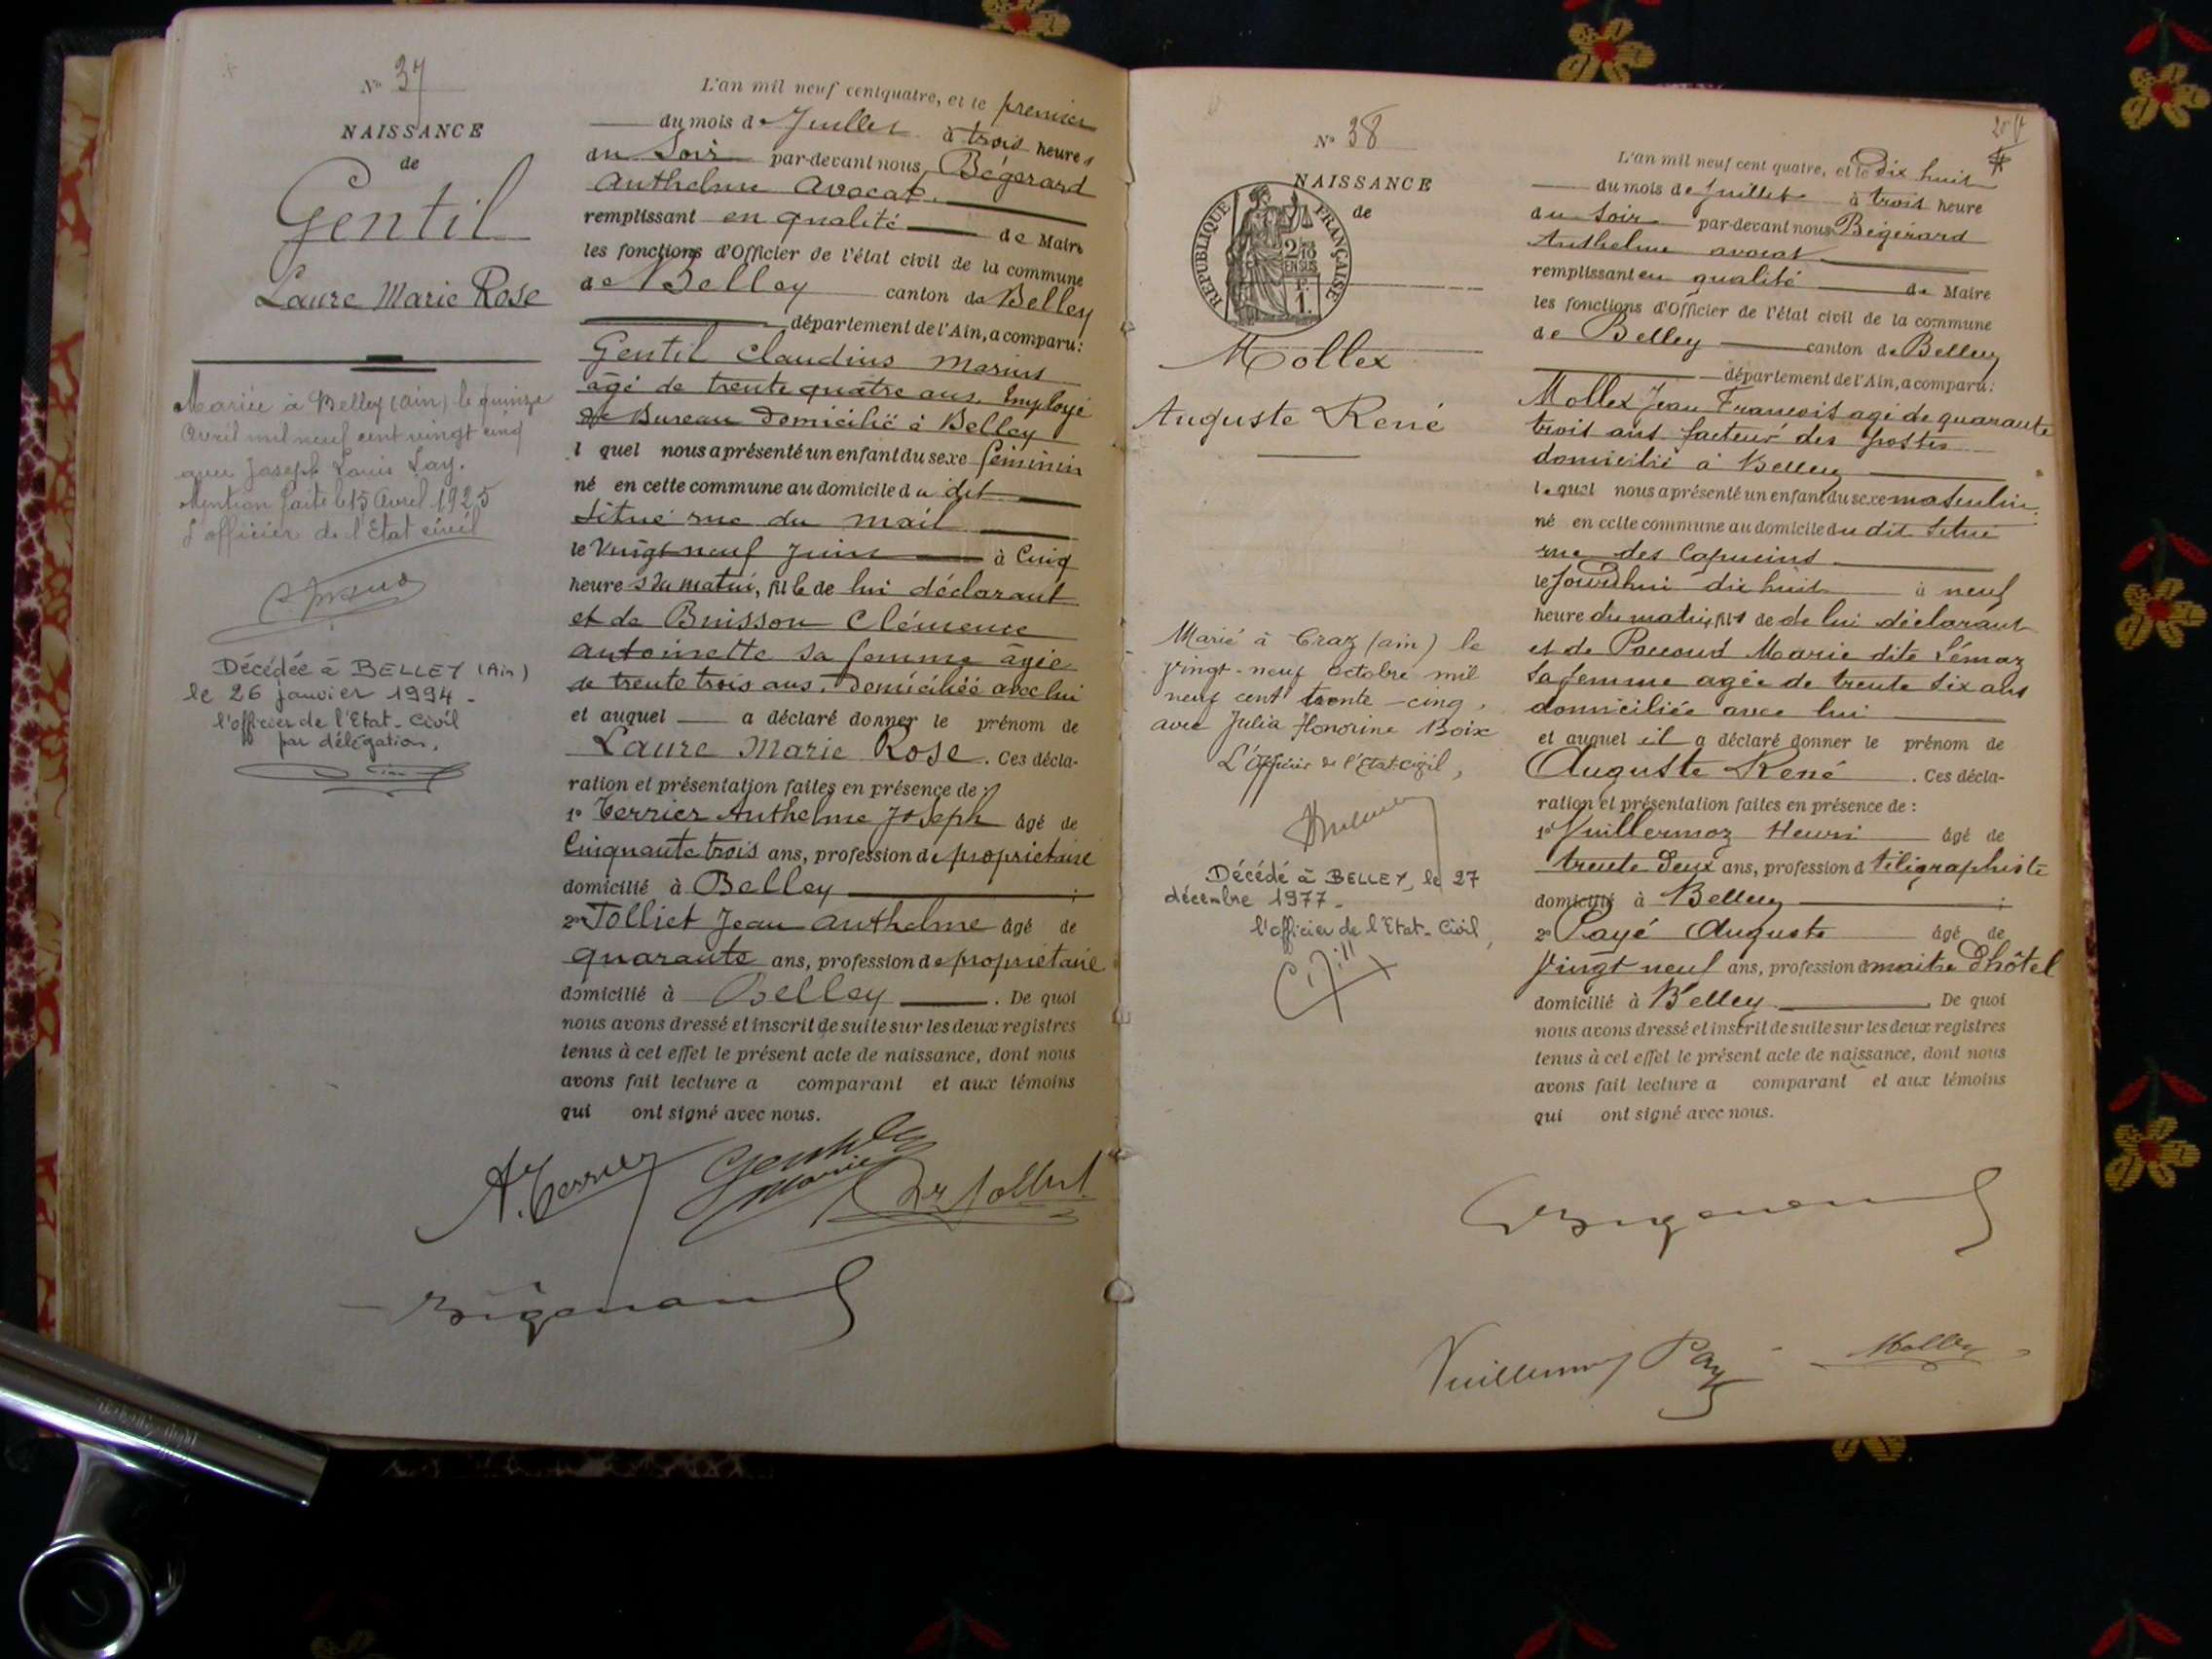 N° 37
NAISSANCE
de
Gentil
Laure Marie Rose
Mariée à Belley (ain) le quinze
Avril mil neuf cent vingt cinq
avec Joseph Louis Lay.
Mention faite le 15 Avril 1925
L'officier de l'Etat civil
Décédée à BELLEY (Ain)
le 26 janvier 1994 -
l'officier de l'Etat-Civil
par délégation.
L'an mil neuf cent quatre, et le premier
du mois de Juillet à trois heures
du Soir par-devant nous, Bégerard
Anthelme Avocat.
remplissant en qualité de Maire
les fonctions d'Officier de l'état civil de la commune
de Belley canton de Belley
département de l'Ain, a comparu:
Gentil Claudius Marius
âgé de trente quatre ans, Employé
de Bureau Domicilié à Belley
l quel nous a présenté un enfant du sexe féminin
né en cette commune au domicile du dit
situé rue du mail
le Vingt neuf Juin à Cinq
heures du matin, fille de lui déclarant
et de Buisson Clémence
Antoinette sa femme âgée
de trente trois ans. Domiciliée avec lui
et auquel a déclaré donner le prénom de
Laure Marie Rose. Ces décla-
ration et présentation faites en présence de :
1° Terrier Anthelme Joseph âgé de
Cinquante trois ans, profession de propriétaire
domicilié à Belley ;
2° Tolliet Jean Anthelme âgé de
quarante ans, profession de propriétaire
domicilié à Belley . De quoi
nous avons dressé et inscrit de suite sur les deux registres
tenus à cet effet le présent acte de naissance, dont nous
avons fait lecture a comparant et aux témoins
qui ont signé avec nous.
A. Terrier
N° 38
NAISSANCE
de
RÉPUBLIQUE FRANÇAISE
2/10
EN SUS
1.
Mollex
Auguste René
Marié à Craz (ain) le
vingt-neuf octobre mil
neuf cent trente-cinq,
avec Julia Honorine Boix
L'Officier de l'Etat-civil,
Décédé à BELLEY, le 27
décembre 1977 -
l'officier de l'Etat-Civil,
L'an mil neuf cent quatre, et le Dix huit
du mois de Juillet à trois heure
du Soir par-devant nous Bégérard
Anthelme avocat
remplissant en qualité de Maire
les fonctions d'Officier de l'état civil de la commune
de Belley canton de Belley
département de l'Ain, a comparu:
Mollex Jean François agé de quarante
trois ans facteur des postes
domicilié à Belley
lequel nous a présenté un enfant du sexe masculin
né en cette commune au domicile du dit situé
rue des Capucins
le jourd'hui dix huit à neuf
heure du matin, fils de de lui déclarant
et de Marie dite Lémaz
sa femme agée de trente six ans
domiciliée avec lui
et auquel il a déclaré donner le prénom de
Auguste René . Ces décla-
ration et présentation faites en présence de :
1° Vuillermoz Henri âgé de
trente Deux ans, profession d téligraphiste
domicilié à Belley ;
2° Payé Auguste âgé de
Vingt neuf ans, profession d maître d'hôtel
domicilié à Belley . De quoi
nous avons dressé et inscrit de suite sur les deux registres
tenus à cet effet le présent acte de naissance, dont nous
avons fait lecture a comparant et aux témoins
qui ont signé avec nous.